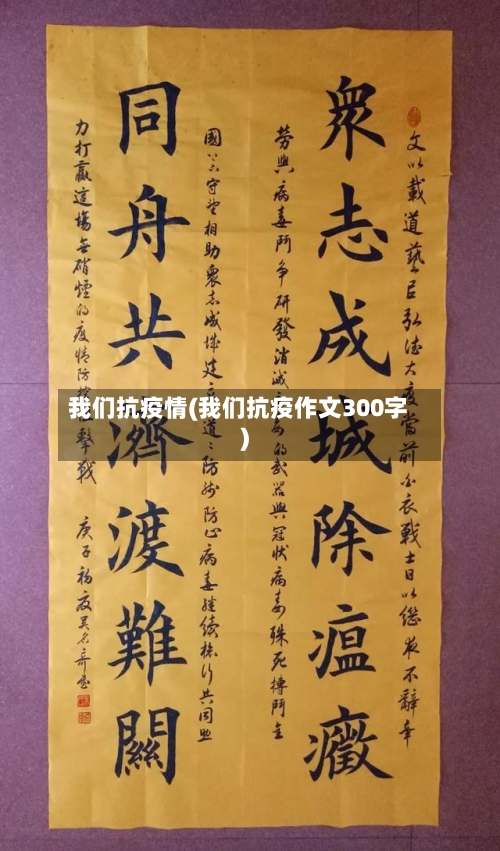 衆志成城除瘟癥
同舟共濟渡難關
文以載道藝臣弘德大疫當前白衣戰士日以继夜不辭辛
劳與病毒鬥争研發消滅的武器與冠状病毒殊死搏鬥全
國守望相助衆志成城建道道防防止病毒继续共同
力打贏這場無硝煙的疫情防擊戰
庚子初夏
我们抗疫情(我们抗疫作文300字
)